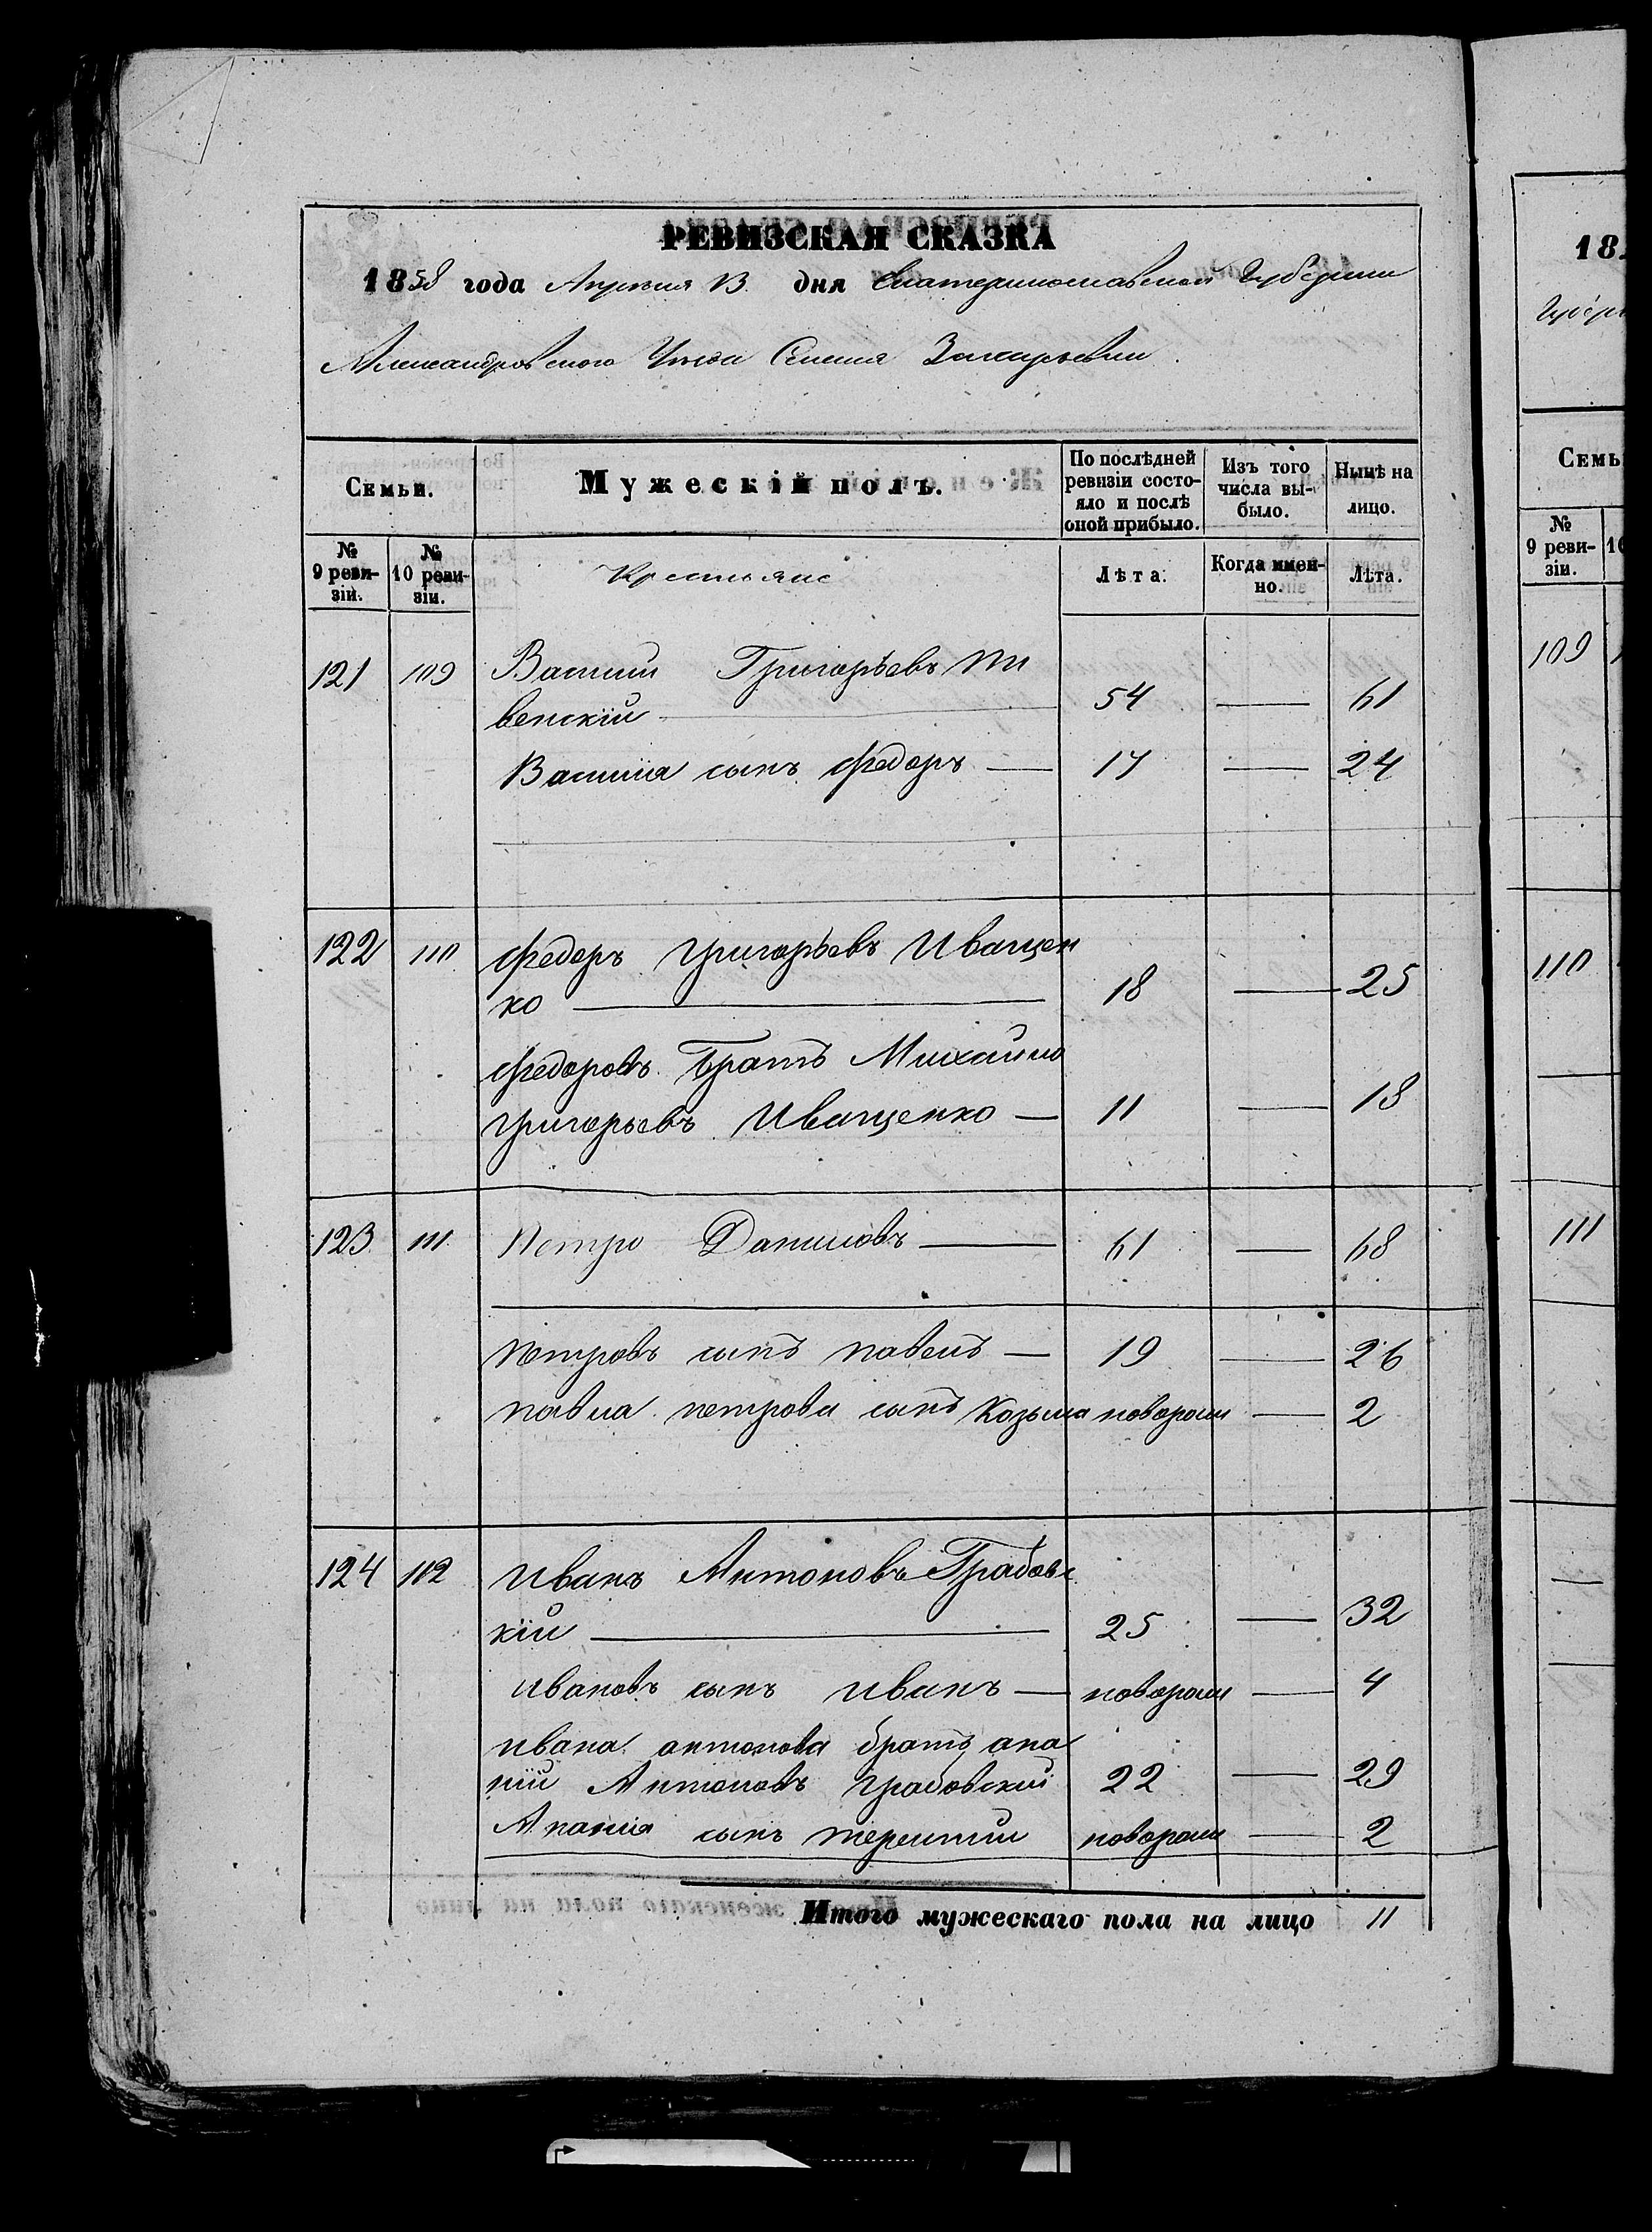 РЕВИЗСКАЯ СКАЗКА
1858 года Апреля 13 дня Екатеринославской Губернии
Александровского Уезда Селения Захарьевки
Семьи.
Мужескій полъ.
По послѣдней ревизіи состо-
яло и послѣ
оной прибыло.
Изъ того
числа вы-
было.
Нынѣ на
лицо.
№
9 реви-
зіи.
№
10 реви-
зіи.
Крестьяне
Лѣта.
Когда имен-
но.
Лѣта.
121 109 Василий Григорьевъ
венскій 54 — 61
Василия сынъ Федоръ — 17 — 24
122 110 Федоръ Григорьевъ Иващен
ко — 18 — 25
Федоровъ Братъ Михайло
Григорьевъ Иващенко — 11 — 18
123 111 Петро Даниловъ — 61 — 68
Петровъ сынъ Павелъ — 19 — 26
Павла Петрова сынъ Козьма новорож — 2
124 112 Иванъ Антоновъ Грабовс
кій — 25 — 32
Ивановъ сынъ Иванъ — новорож — 4
Ивана Антонова братъ Ана
ній Антоновъ Грабовский 22 — 29
Анания сынъ Терентий новорож — 2
Итого мужескаго пола на лицо 11
18
Семь
№
9 реви-
зіи.
109
110
111